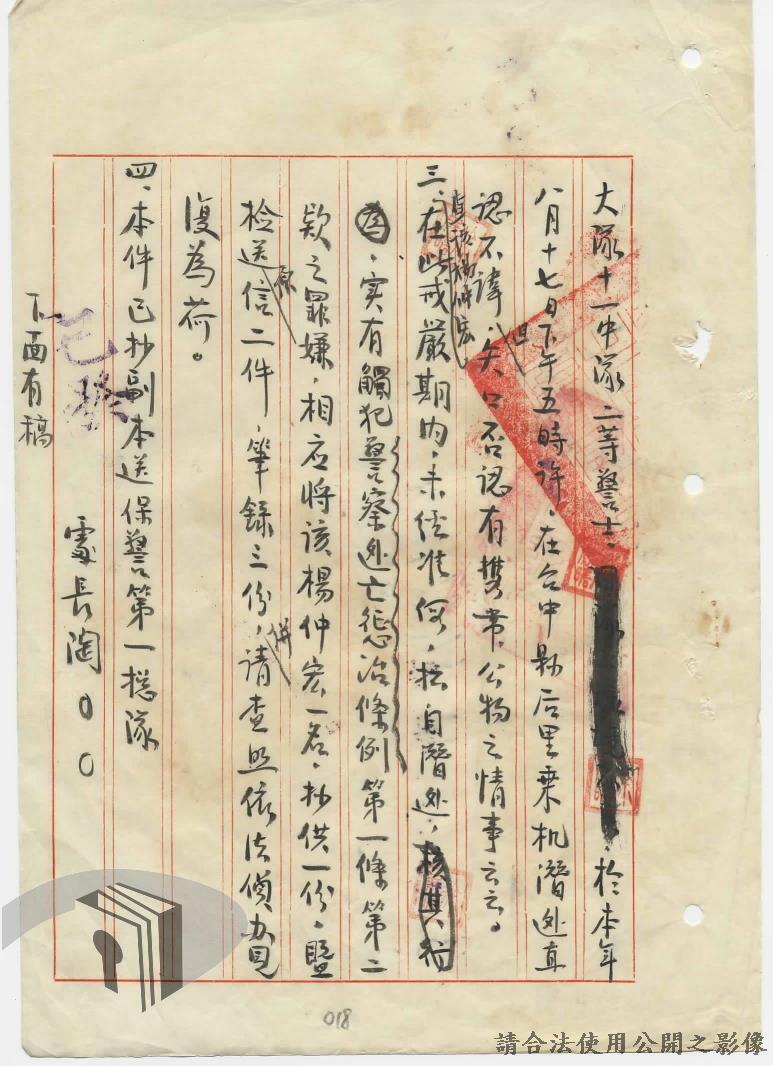 大隊十一中隊二等警士、 於本年
八月十七日下午五時許、在台中縣后里乘机潛逃直
認不諱、但矢口否認有携帶公物之情事云云。
三、查該楊仲宏在此戒嚴期內、未經准何、擅自潛逃、核其行
為、實有觸犯警察逃亡懲治條例第一條第二
欵之罪嫌、相应将該楊仲宏一名、抄供一份、暨
检送原信二件、筆錄三份、併請查照依法偵办見
復為荷。
四、本件已抄副本送保警第一總隊
處長陶〇〇
下面有稿
已發
018
請合法使用公開之影像